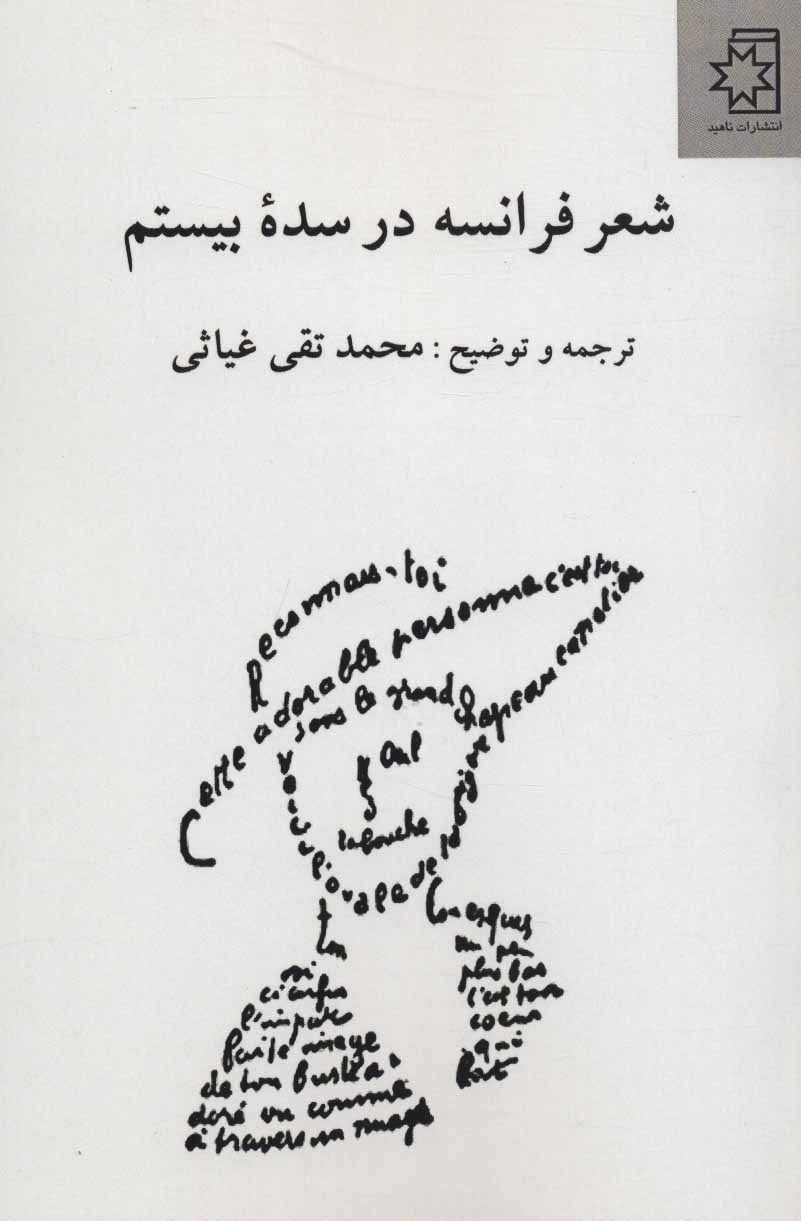 انتشارات ناهید
شعر فرانسه در سدهٔ بیستم
ترجمه و توضیح : محمد تقی غیاثی
Reconnais-toi
Cette adorable personne c'est toi
sous le grand chapeau canotier
Œil
la bouche
Voici l'ovale de ta figure
Ton
ci enfin
l'impar
faite image
de ton buste a
doré vu comme
à travers un nuage
Un peu
plus bas
c'est ton
coeur
qui
bat